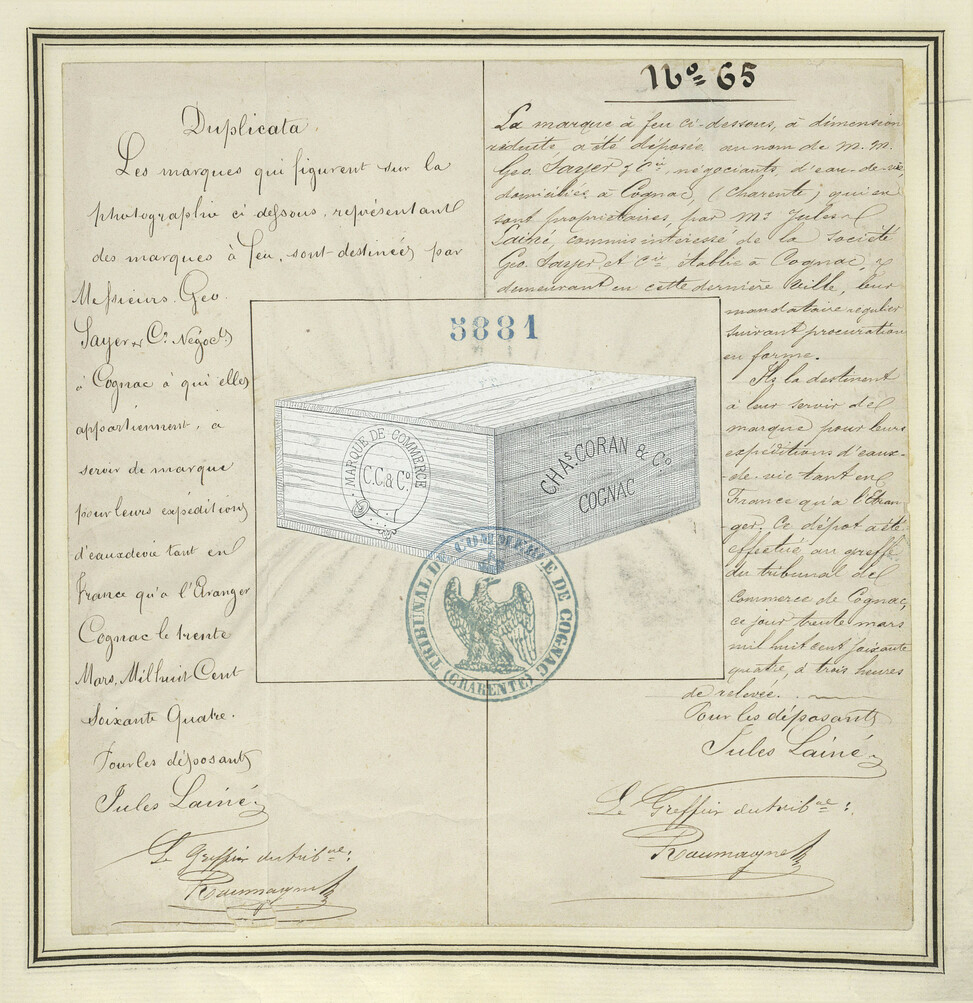 Duplicata.
Les marques qui figurent sur la
photographie ci dessous, représentant
des marques à feu, sont destinées par
Messieurs Geo.
Sayer & Co. Négocts
à Cognac à qui elles
appartiennent, à
servir de marque
pour leurs expéditions
d'eaux de vie tant en
France qu'a l'Etranger
Cognac le trente
Mars, Mil huit Cent
Soixante Quatre.
Pour les déposants
Jules Lainé
Le Greffier du tribnal:
Raumagne
No 65
La marque à feu ci-dessous, à dimension
réduite a été déposée au nom de M. M.
Geo. Sayer & Cie, négociants d'eau-de-vie,
domiciliés à Cognac, (Charente) qui en
sont propriétaires, par Mr Jules
Lainé, commis intéressé de la société
Geo. Sayer et Cie établie à Cognac, y
demeurant en cette dernière ville, leur
mandataire régulier
suivant procuration
en forme.
Ils la destinent
à leur servir de
marque pour leurs
expéditions d'eaux-
de-vie tant en
France qu'à l'Etran-
ger. Ce dépôt a été
effectué au greffe
du tribunal de
Commerce de Cognac,
ce jour trente mars
mil huit cent soixante
quatre, à trois heures
de relevée.
Pour les déposants
Jules Lainé
Le Greffier du tribal:
Raumagne
5881
MARQUE DE COMMERCE
C.C. & Co.
CHAs. CORAN & Co.
COGNAC
TRIBUNAL DE COMMERCE DE COGNAC
(CHARENTE)